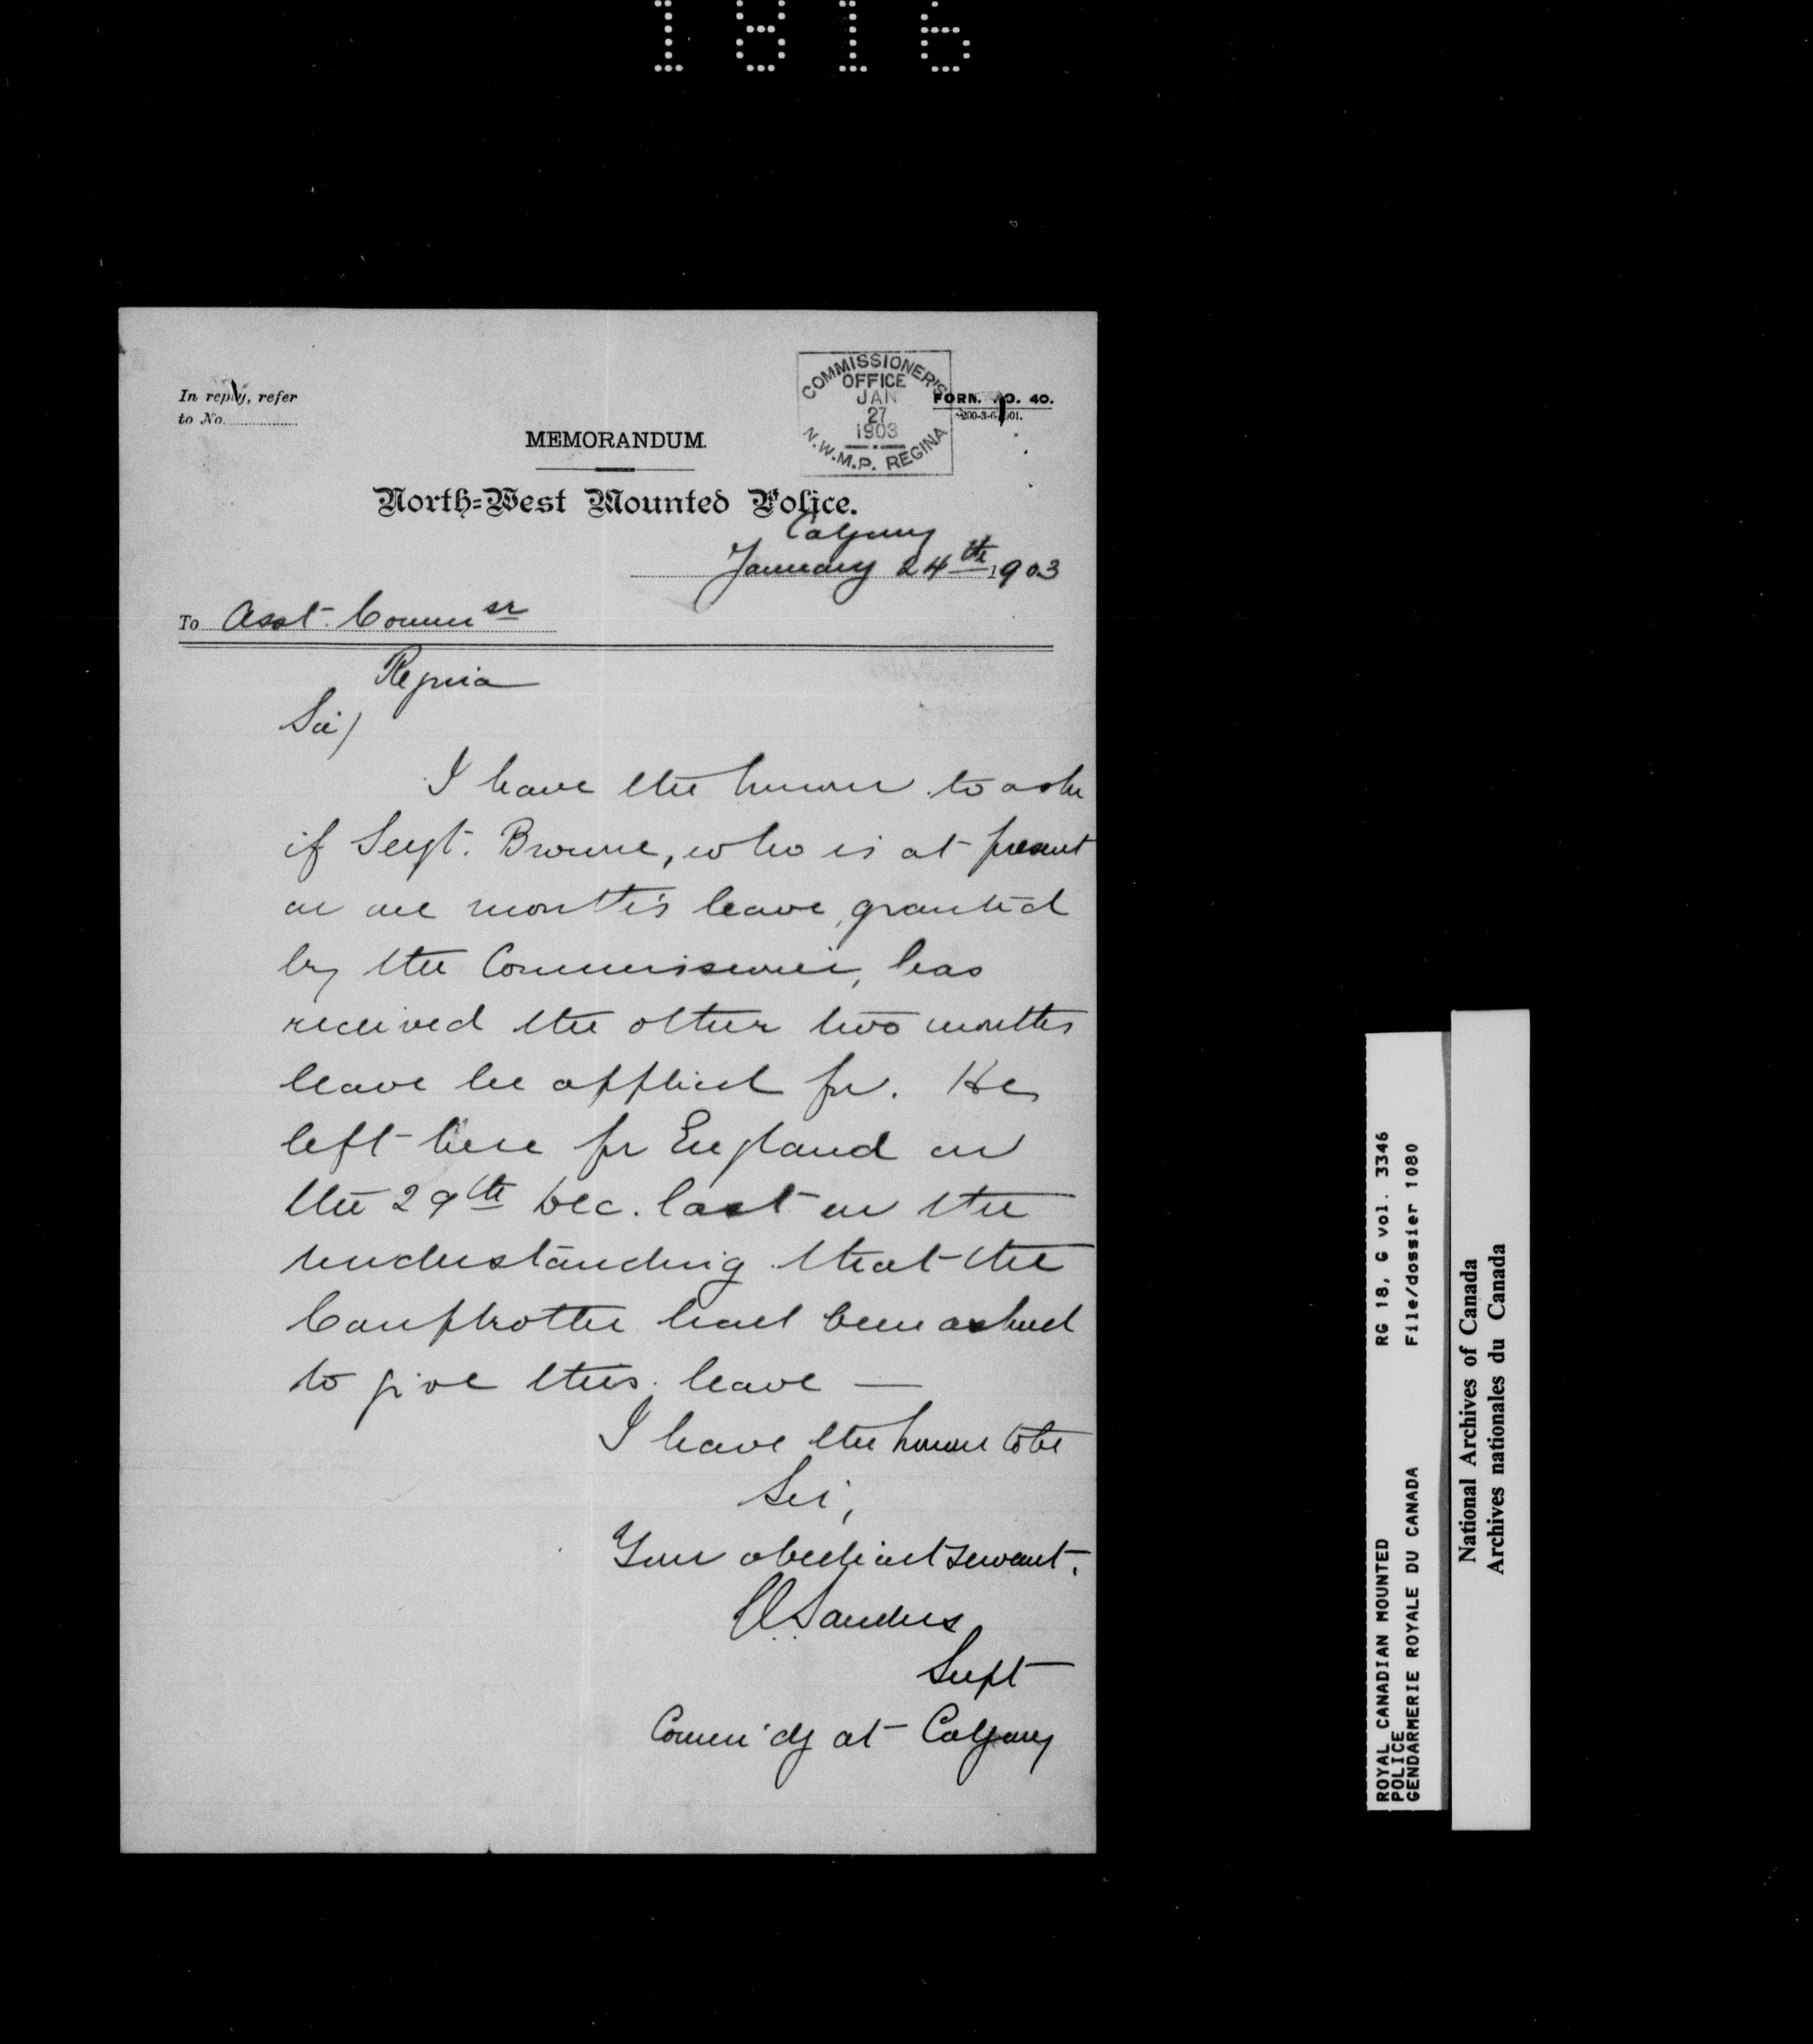 1816
In reply, refer
to No.
COMMISSIONER'S
OFFICE
JAN
27
1903
N.W.M.P. REGINA
FORM NO. 40.
MEMORANDUM.
North=West Mounted Police.
Calgary
January 24th 1903
To Asst. Commsr
Regina
Sir/
I have the honour to ask
if Sergt. Browne, who is at present
on one month's leave, granted
by the Commissioner, has
received the other two months
leave he applied for. He
left here for England on
the 29th Dec. last on the
understanding that the
Comptroller had been asked
to give this leave —
I have the honour to be
Sir,
Your obedient servant.
GSanders
Supt
Comm'dg at Calgary
ROYAL CANADIAN MOUNTED RG 18, G vol. 3346
POLICE
GENDARMERIE ROYALE DU CANADA File/dossier 1080
National Archives of Canada
Archives nationales du Canada